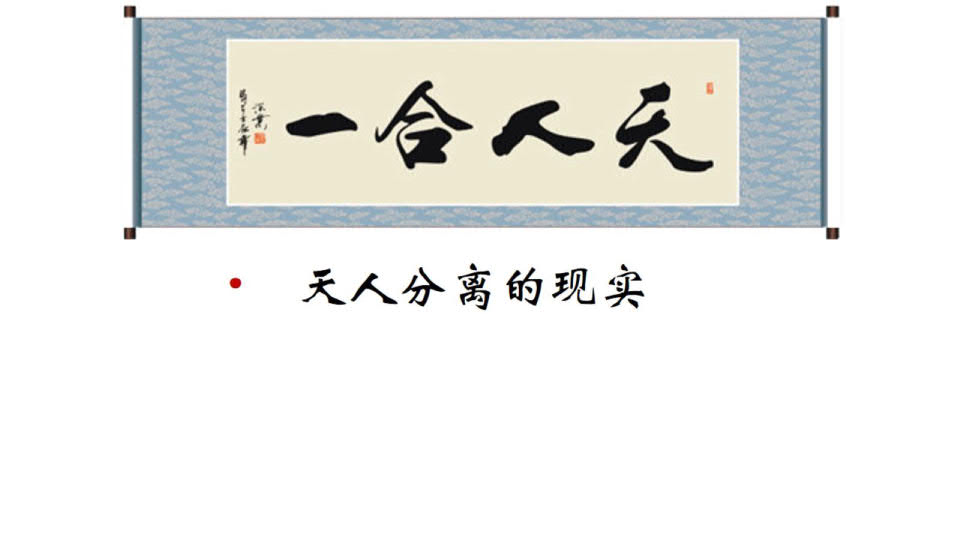 天人合一
天人分离的现实